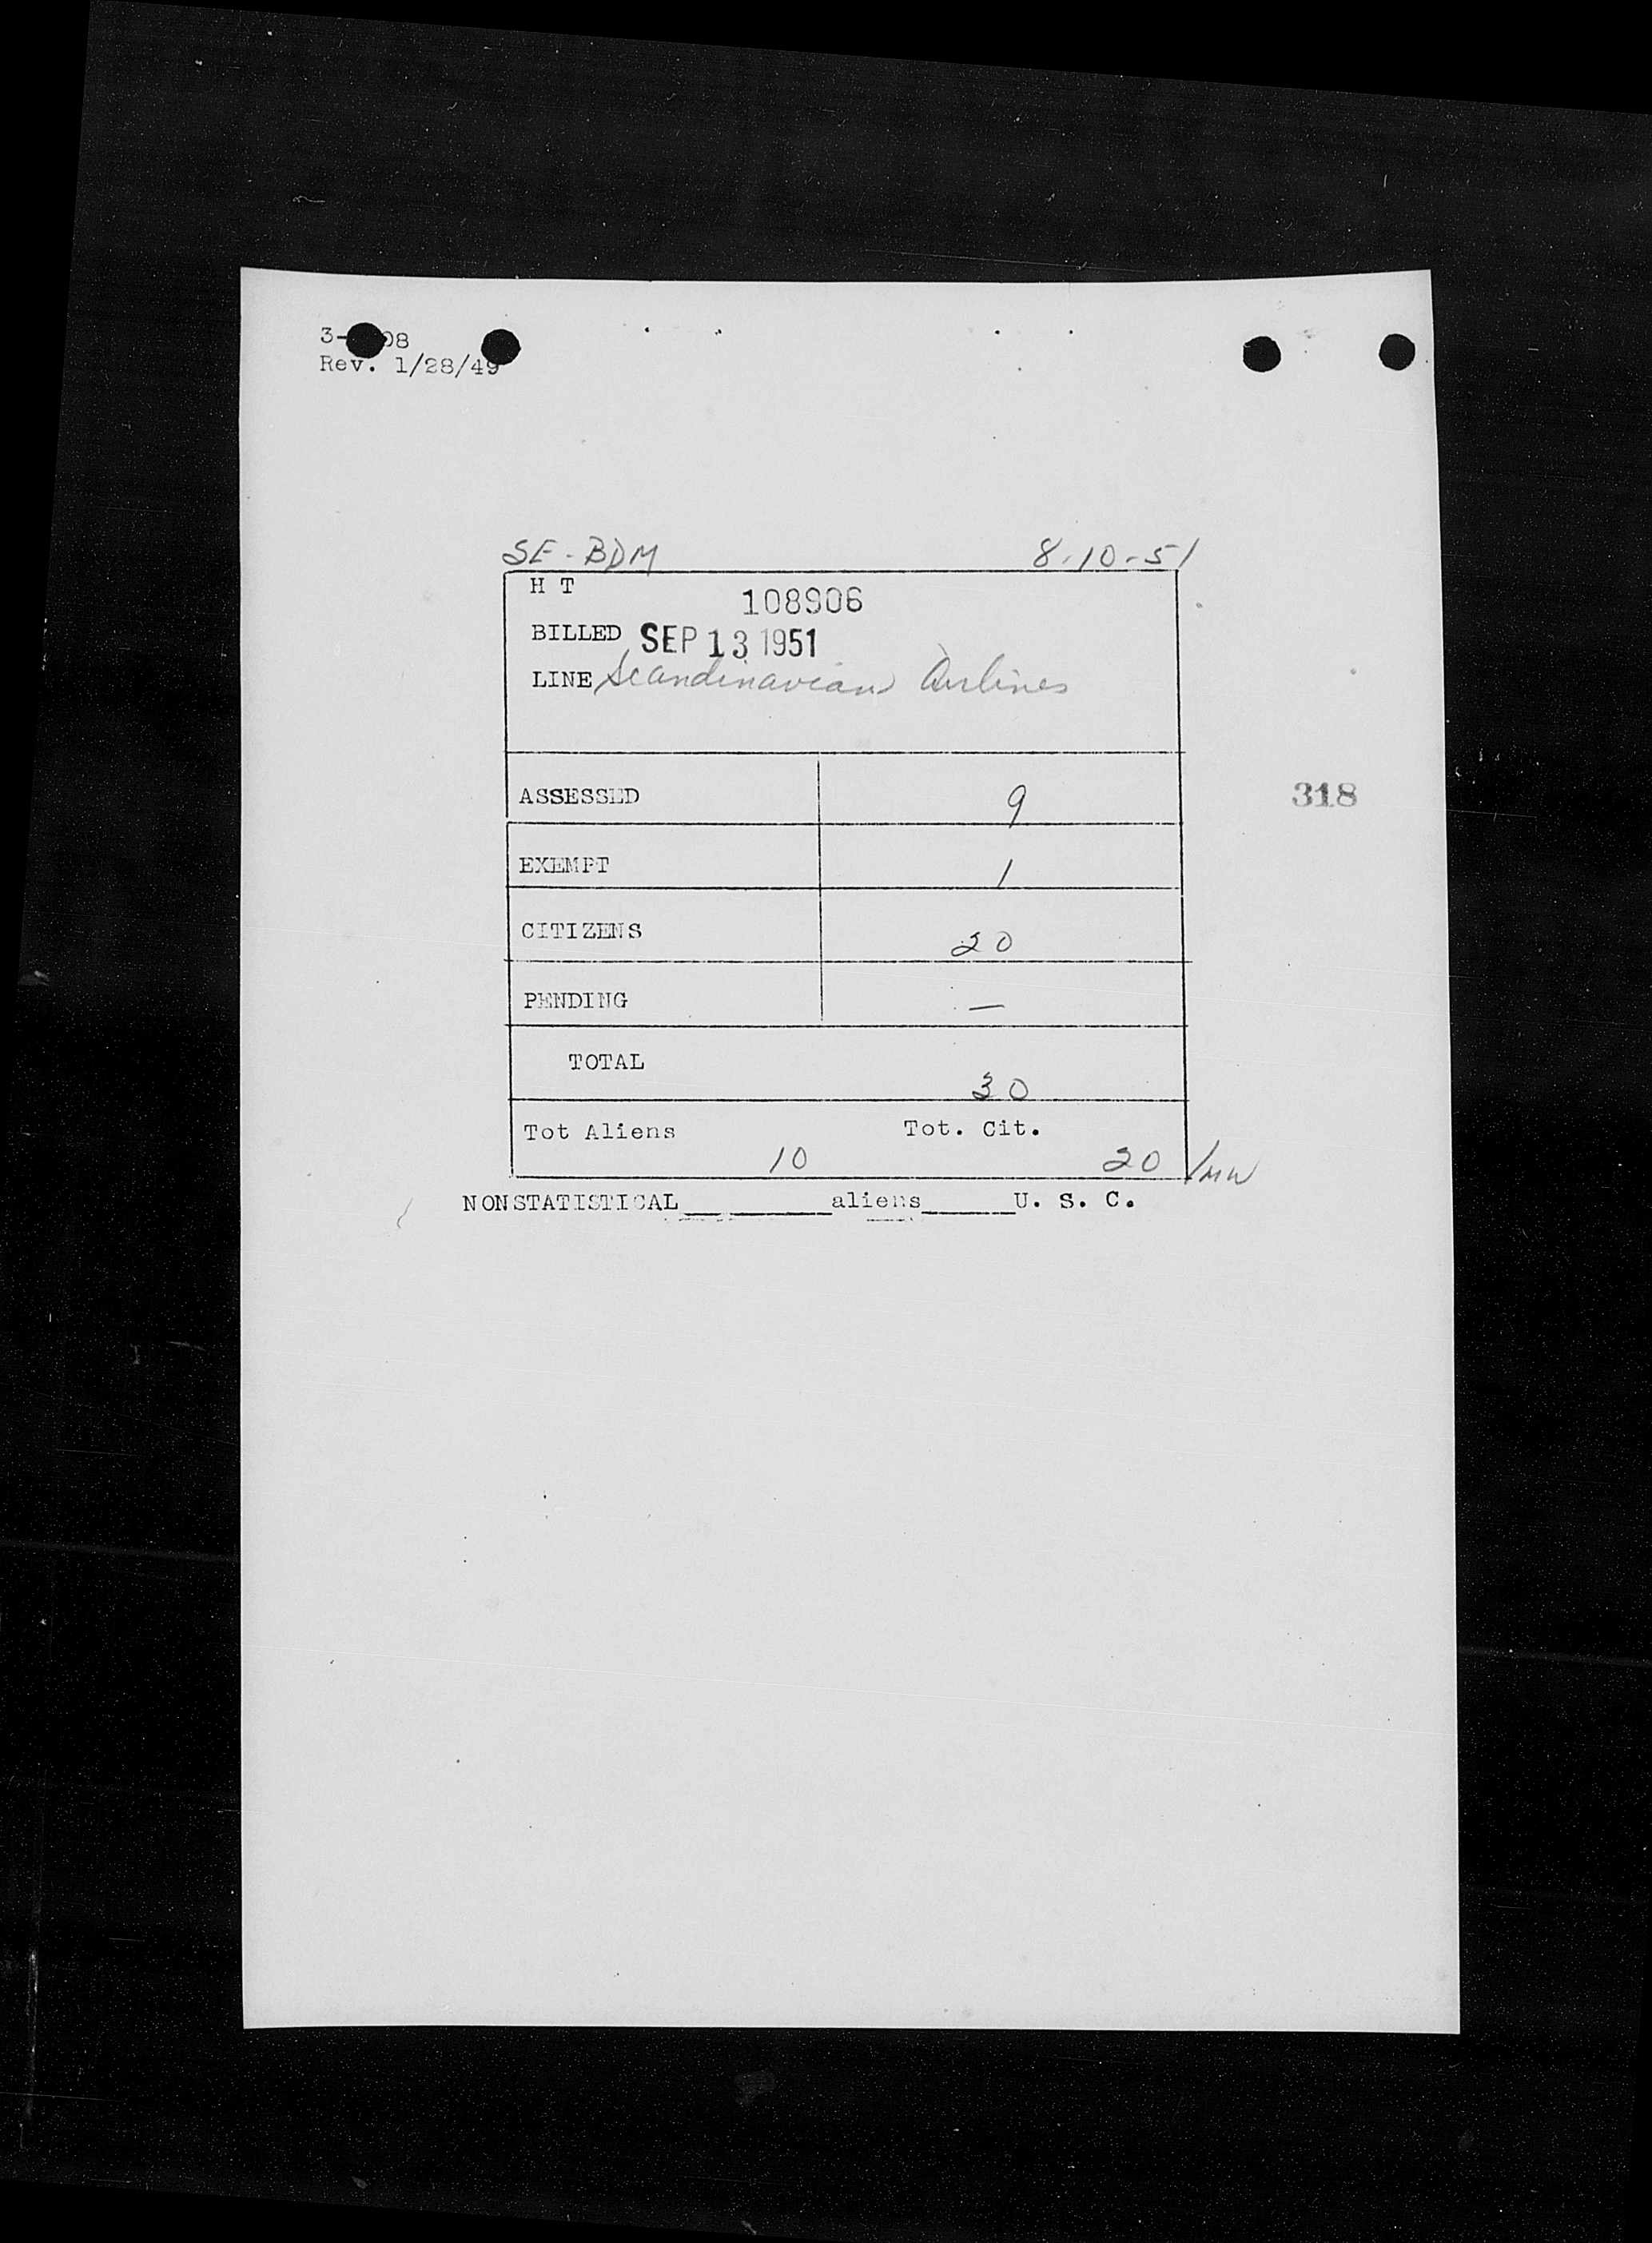 3-
08
Rev. 1/28/49
SE-BDM 8-10-51
H T 108906
BILLED SEP 13 1951
LINE Scandinavian Airlines
ASSESSED 9
318
EXEMPT 1
CITIZENS 20
PENDING —
TOTAL 30
Tot Aliens 10 Tot. Cit. 20 /MW
NONSTATISTICAL________aliens_____U. S. C.